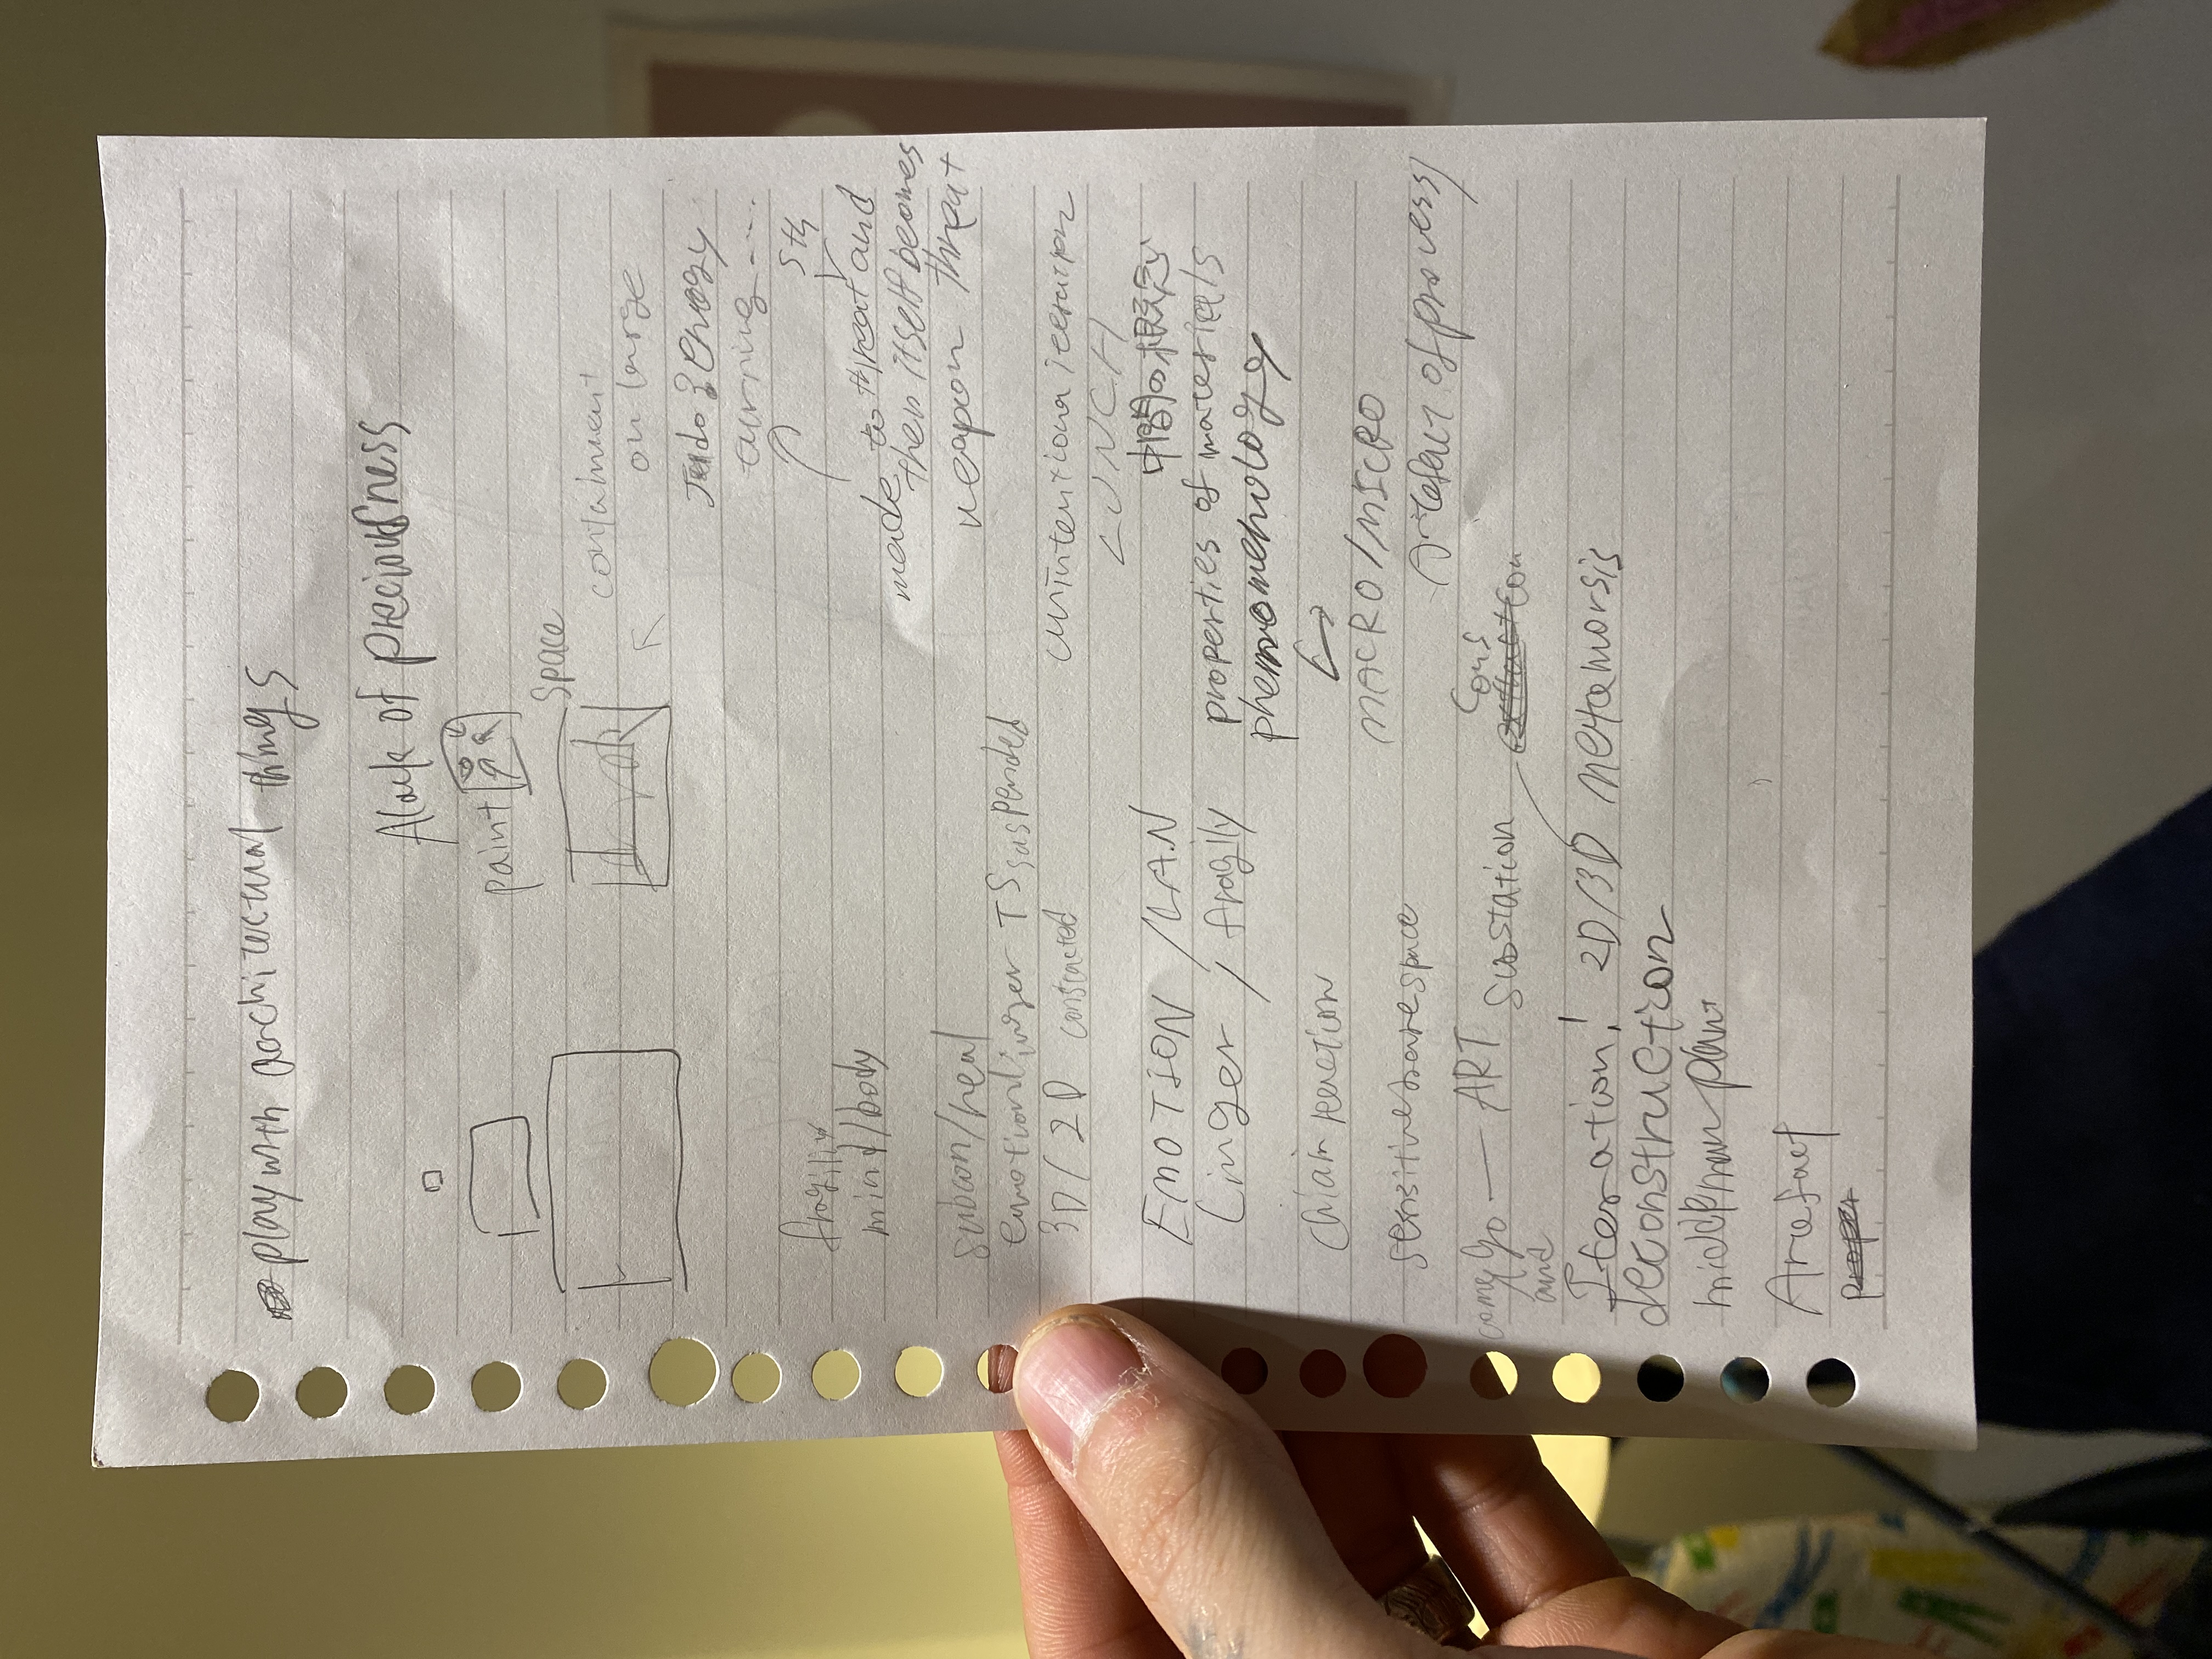 play with architectual things
Alack of preciousness
paint
Space
work
containment
on large
energy
turning....
sth
fragility
mind/body
made to threat and
then itself becomes
weapon threat
subcon/real
emotion linger T Suspended
3D/2D constracted
unintentional
LUNCH
EMOTION /LAN
Linger / fragily
properties of materials
phenomenology
Chian reaction
MACRO/MICRO
sensitive space
Artefact of process/
come go — ART
and
Substation
Cons
Iteration! 2D/3D metamorsis
deconstruction
middleman plan
Artefact